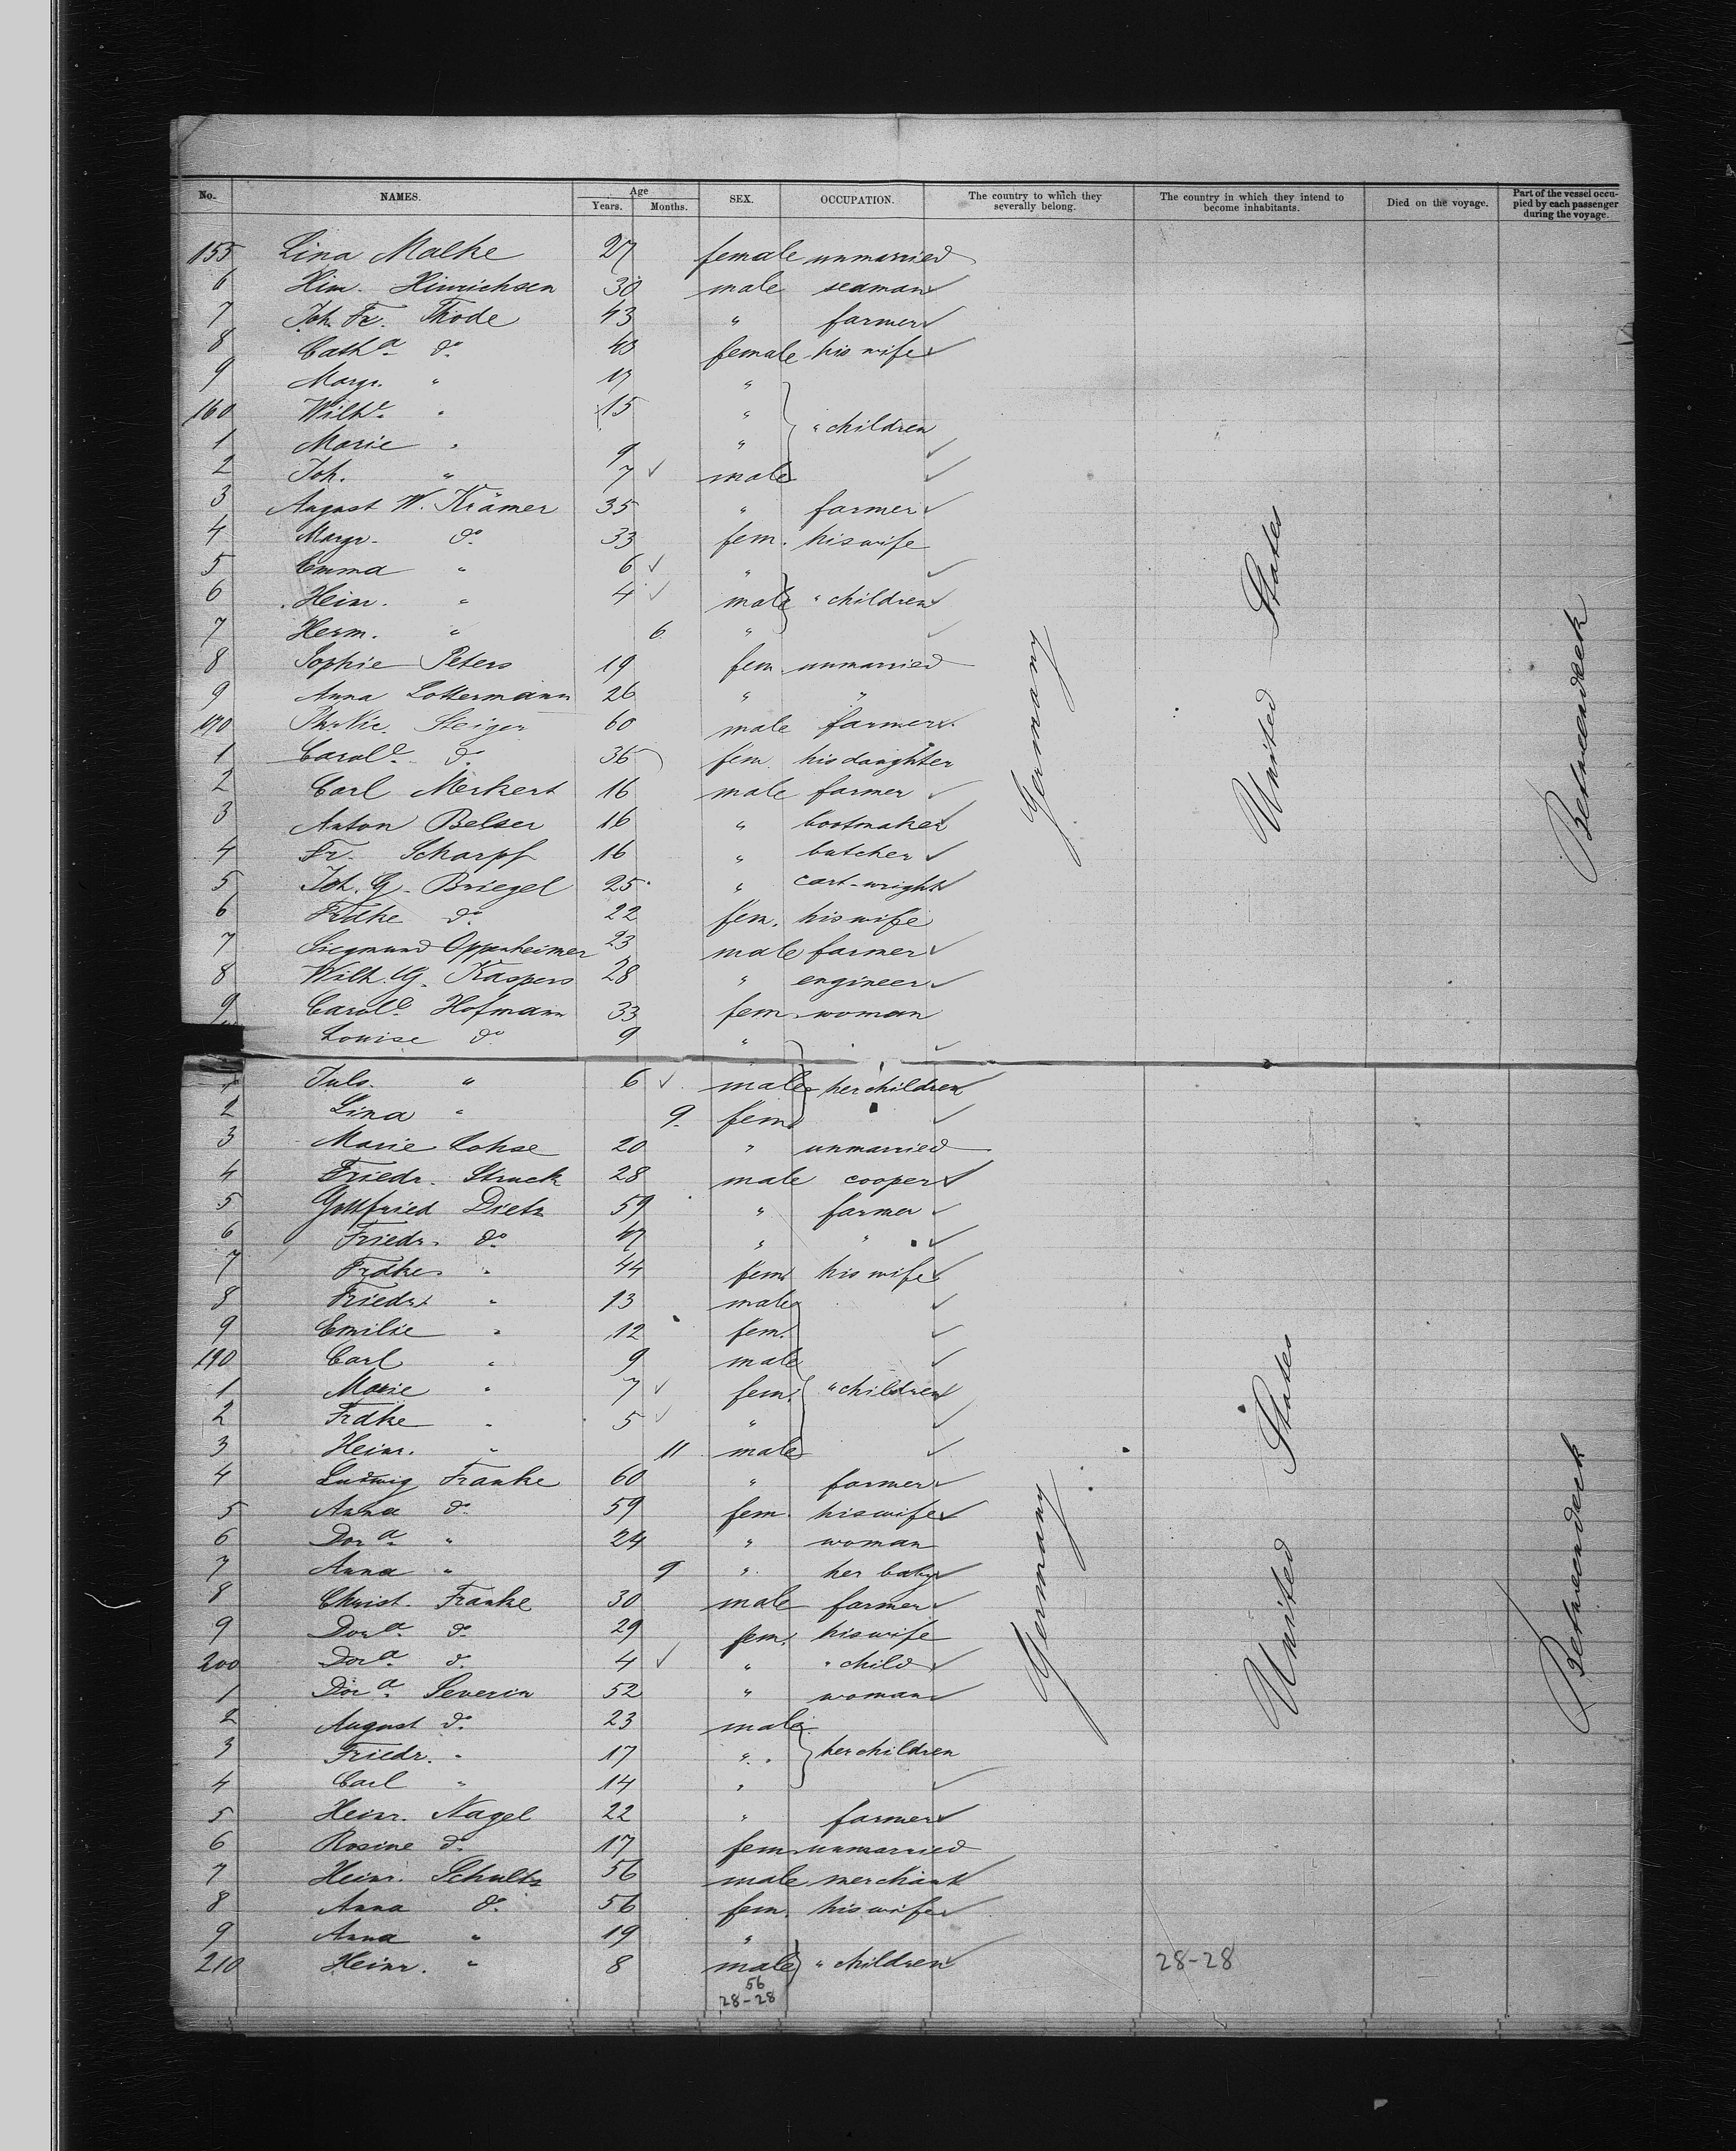 No. NAMES. Age Years. Months. SEX. OCCUPATION. The country to which they severally belong. The country in which they intend to become inhabitants. Died on the voyage. Part of the vessel occupied by each passenger during the voyage.
155 Lina Malke 27 female unmarried
6 Hinr. Hinrichsen 30 male seaman
7 Joh. Fr. Thode 43 " farmer
8 Catha. do. 43 female his wife
9 Margr. " 17 "
160 Wilhe. " 15 "
" children
1 Marie " 9 "
2 Joh. " 7 male
3 August W. Krämer 35 " farmer
4 Margr. do. 33 fem. his wife
5 Emma " 6 "
6 Heinr. " 4 male " children
7 Herm. " 6 "
8 Sophie Peters 19 fem. unmarried
9 Anna Lottermann 26 " "
170 Steiger 60 male farmer
1 Carole. do. 36 fem. his daughter
2 Carl Merkert 16 male farmer
3 Anton Belser 16 " bootmaker
4 Fr. Scharpf 16 " butcher
5 Joh. G. Briegel 25 " cart-wright
6 Frdke do. 22 fem. his wife
7 Siegmund Oppenheimer 23 male farmer
8 Wilh. G. Kaspers 28 " engineer
9 Carole. Hofmann 33 fem. woman
Louise do 9 "
1 Juls. " 6 male her children
2 Lina " 9 fem.
3 Marie Lohse 20 " unmarried
4 Friedr. Struck 28 male cooper
5 Gottfried Dietz 59 " farmer
6 Friedr. do. 47 " "
7 Frdke. " 44 fem. his wife
8 Friedr. " 13 male
9 Emilie " 12 fem.
190 Carl " 9 male
1 Marie " 7 fem. " children
2 Frdke " 5 "
3 Heinr. " 11 male
4 Ludwig Franke 60 " farmer
5 Anna do. 59 fem. his wife
6 Dora. " 24 " woman
7 Anna " 9 " her baby
8 Christ. Franke 30 male farmer
9 Dora. do. 29 fem. his wife
200 Dora. do. 4 " " child
1 Dora. Severin 52 " woman
2 August do. 23 male
3 Friedr. " 17 " her children
4 Carl " 14 "
5 Heinr. Nagel 22 " farmer
6 Rosine do. 17 fem. unmarried
7 Heinr. Schultz 56 male merchant
8 Anna do. 56 fem. his wife
9 Anna " 19 "
210 Heinr. " 8 male " children
Germany
United States
Betweendeck
Germany
United States
Betweendeck
28-28
56
28-28